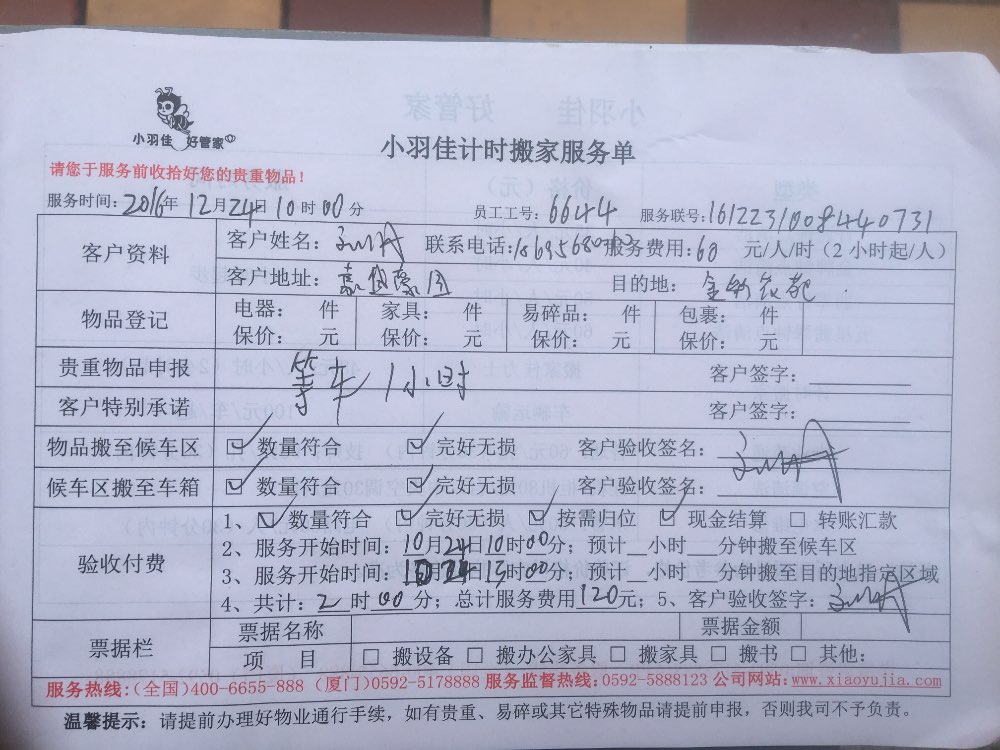 小羽佳 好管家
小羽佳计时搬家服务单
请您于服务前收拾好您的贵重物品！
服务时间：2016年 12月24日 10时00分 员工工号：6644 服务联号：16122310084440731
客户资料 客户姓名： 联系电话： 服务费用：60 元/人/时（2小时起/人）
客户地址： 目的地：
物品登记 电器： 件 家具： 件 易碎品： 件 包裹： 件
保价： 元 保价： 元 保价： 元 保价： 元
贵重物品申报 等车1小时 客户签字：
客户特别承诺 客户签字：
物品搬至候车区 ☑ 数量符合 ☑ 完好无损 客户验收签名：
候车区搬至车箱 ☑ 数量符合 ☑ 完好无损 客户验收签名：
验收付费 1、☑ 数量符合 ☑ 完好无损 ☑ 按需归位 ☑ 现金结算 □ 转账汇款
2、服务开始时间：10月24日10时00分；预计__小时___分钟搬至候车区
3、服务开始时间：月24日13时00分；预计__小时___分钟搬至目的地指定区域
4、共计：2时00分；总计服务费用120元；5、客户验收签字：
票据栏 票据名称 票据金额
项 目 □ 搬设备 □ 搬办公家具 □ 搬家具 □ 搬书 □ 其他：
服务热线：(全国)400-6655-888 (厦门)0592-5178888 服务监督热线：0592-5888123 公司网站：www.xiaoyujia.com
温馨提示：请提前办理好物业通行手续，如有贵重、易碎或其它特殊物品请提前申报，否则我司不予负责。